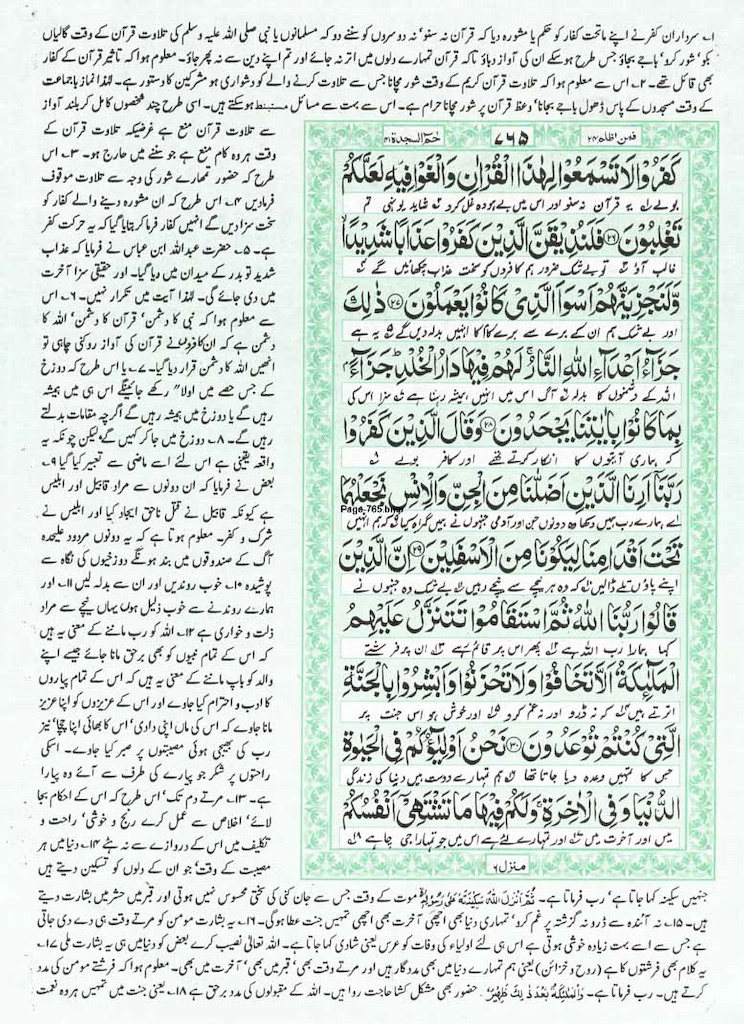 ۱۔ سرداران کفر نے اپنے ماتحت کفار کو حکم یا مشورہ دیا کہ قرآن نہ سنو' نہ دوسروں کو سننے دو کہ مسلمانوں یا نبی صلی اللہ علیہ وسلم کی تلاوت قرآن کے وقت گالیاں
بکو' شور کرو' باجے بجاؤ جس طرح ہوسکے ان کی آواز دباؤ تاکہ قرآن تمہارے دلوں میں اثر نہ جائے اور تم اپنے دین سے نہ پھر جاؤ۔ معلوم ہوا کہ تاثیر قرآن کے کفار
بھی قائل تھے۔ ۲۔ اس سے معلوم ہوا کہ تلاوت قرآن کریم کے وقت شور مچانا جس سے تلاوت کرنے والے کو دشواری ہو مشرکین کا دستور ہے۔ لہٰذا نماز باجماعت
کے وقت مسجدوں کے پاس ڈھول باجے بجانا' وعظ قرآن پر شور مچانا حرام ہے۔ اس سے بہت سے مسائل مستنبط ہوسکتے ہیں۔ اسی طرح چند شخصوں کا مل کر بلند آواز
سے تلاوت قرآن منع ہے غرضیکہ تلاوت قرآن کے
وقت ہر وہ کام منع ہے جو سننے میں حارج ہو۔ ۳۔ اس
طرح کہ حضور تمہارے شور کی وجہ سے تلاوت موقوف
فرمادیں ۴۔ اس طرح کہ ان مشورہ دینے والے کفار کو
سخت سزا دیں گے انہیں کفار فرما کر بتایا گیا کہ یہ حرکت کفر
ہے۔ ۵۔ حضرت عبداللہ ابن عباس نے فرمایا کہ عذاب
شدید تو بدر کے میدان میں دیا گیا۔ اور حقیقی سزا آخرت
میں دی جائے گی۔ لہٰذا آیت میں تکرار نہیں۔ ۶۔ اس
سے معلوم ہوا کہ نبی کا دشمن' قرآن کا دشمن' اللہ کا
دشمن ہے کہ ان کافروں نے قرآن کی آواز روکنی چاہی تو
انہیں اللہ کا دشمن قرار دیا گیا۔ ۷۔ یا اس طرح کہ دوزخ
کے جس حصے میں اولا" رکھے جائینگے اس ہی میں ہمیشہ
رہیں گے یا دوزخ میں ہمیشہ رہیں گے اگرچہ مقامات بدلتے
رہیں گے۔ ۸۔ دوزخ میں جا کر کہیں گے لیکن چونکہ یہ
واقعہ یقینی ہے اس لئے اسے ماضی سے تعبیر کیا گیا ۹۔
بعض نے فرمایا کہ ان دونوں سے مراد قابیل اور ابلیس
ہے کیونکہ قابیل نے قتل ناحق ایجاد کیا اور ابلیس نے
شرک و کفر۔ معلوم ہوتا ہے کہ یہ دونوں مردود علیحدہ
آگ کے صندوقوں میں بند ہونگے دوزخیوں کی نگاہ سے
پوشیدہ ۱۰۔ خوب روندیں اور ان سے بدلہ لیں ۱۱۔ اور
ہمارے روندنے سے خوب ذلیل ہوں یہاں نیچے سے مراد
ذلت و خواری ہے ۱۲۔ اللہ کو رب ماننے کے معنی یہ ہیں
کہ اس کے تمام نبیوں کو بھی برحق مانا جائے جیسے اپنے
والد کو باپ ماننے کے معنی یہ ہیں کہ اس کے تمام پیاروں
کا ادب و احترام کیا جاوے اور اس کے عزیزوں کو اپنا عزیز
مانا جاوے کہ اس کی ماں اپنی دادی' اس کا بھائی اپنا چچا' نیز
رب کی بھیجی ہوئی مصیبتوں پر صبر کیا جاوے۔ اسکی
راحتوں پر شکر جو پیارے کی طرف سے آئے وہ پیارا
ہے۔ ۱۳۔ مرتے دم تک' اس طرح کہ اس کے احکام بجا
لائے' اخلاص سے عمل کرے رنج و خوشی' راحت و
تکلیف میں اس کے دروازے سے نہ ہٹے ۱۴۔ دنیا میں ہر
مصیبت کے وقت' جو ان کے دلوں کو تسکین دیتے ہیں
فمن اظلم ۲۴
۷۶۵
حٰمٓ السجدۃ ۴۱
كَفَرُوْا لَا تَسْمَعُوْا لِهٰذَا الْقُرْاٰنِ وَالْغَوْا فِيْهِ لَعَلَّكُمْ
بولے یہ قرآن نہ سنو اور اس میں بے ہودہ غل کرو شاید یونہی تم
تَغْلِبُوْنَ ۲۶ فَلَنُذِيْقَنَّ الَّذِيْنَ كَفَرُوْا عَذَابًا شَدِيْدًا
غالب آؤ تو بے شک ضرور ہم کافروں کو سخت عذاب چکھائیں گے
وَّلَنَجْزِيَنَّهُمْ اَسْوَاَ الَّذِيْ كَانُوْا يَعْمَلُوْنَ ۲۷ ذٰلِكَ
اور بے شک ہم ان کے برے سے برے کام کا انہیں بدلہ دیں گے یہ ہے
جَزَآءُ اَعْدَآءِ اللّٰهِ النَّارُ لَهُمْ فِيْهَا دَارُ الْخُلْدِ جَزَآءً
اللہ کے دشمنوں کا بدلہ آگ اس میں انہیں ہمیشہ رہنا ہے سزا اس کی
بِمَا كَانُوْا بِاٰيٰتِنَا يَجْحَدُوْنَ ۲۸ وَقَالَ الَّذِيْنَ كَفَرُوْا
کہ ہماری آیتوں کا انکار کرتے تھے اور کافر بولے
رَبَّنَا اَرِنَا الَّذَيْنِ اَضَلّٰنَا مِنَ الْجِنِّ وَالْاِنْسِ نَجْعَلْهُمَا
Page-765.bmp
اے ہمارے رب ہمیں دکھا وہ دونوں جن اور آدمی جنہوں نے ہمیں گمراہ کیا کہ ہم انہیں
تَحْتَ اَقْدَامِنَا لِيَكُوْنَا مِنَ الْاَسْفَلِيْنَ ۲۹ اِنَّ الَّذِيْنَ
اپنے پاؤں تلے ڈالیں کہ وہ ہر نیچے سے نیچے رہیں بے شک وہ جنہوں نے
قَالُوْا رَبُّنَا اللّٰهُ ثُمَّ اسْتَقَامُوْا تَتَنَزَّلُ عَلَيْهِمُ
کہا ہمارا رب اللہ ہے پھر اس پر قائم رہے ان پر فرشتے
الْمَلٰٓئِكَةُ اَلَّا تَخَافُوْا وَلَا تَحْزَنُوْا وَاَبْشِرُوْا بِالْجَنَّةِ
اترتے ہیں کہ نہ ڈرو اور نہ غم کرو اور خوش ہو اس جنت پر
الَّتِيْ كُنْتُمْ تُوْعَدُوْنَ ۳۰ نَحْنُ اَوْلِيٰٓؤُكُمْ فِي الْحَيٰوةِ
جس کا تمہیں وعدہ دیا جاتا تھا ہم تمہارے دوست ہیں دنیا کی زندگی
الدُّنْيَا وَفِي الْاٰخِرَةِ وَلَكُمْ فِيْهَا مَا تَشْتَهِيْٓ اَنْفُسُكُمْ
میں اور آخرت میں اور تمہارے لئے ہے اس میں جو تمہارا جی چاہے
منزل ۶
جنہیں سکینہ کہا جاتا ہے' رب فرماتا ہے۔ ثُمَّ اَنْزَلَ اللّٰهُ سَكِيْنَتَهٗ عَلٰى رَسُوْلِهٖ موت کے وقت جس سے جان کنی کی سختی محسوس نہیں ہوتی اور قبر میں حشر میں بشارت دیتے
ہیں۔ ۱۵۔ نہ آئندہ سے ڈرو نہ گزشتہ پر غم کرو' تمہاری دنیا بھی اچھی آخرت بھی اچھی تمہیں جنت عطا ہوگی۔ ۱۶۔ یہ بشارت مومن کو مرتے وقت ہی دے دی جاتی
ہے جس سے اسے بہت زیادہ خوشی ہوتی ہے اس ہی لئے اولیاء کی وفات کو عرس یعنی شادی کہا جاتا ہے۔ اللہ تعالیٰ نصیب کرے بعض کو دنیا میں ہی یہ بشارت ملی ۱۷۔
یہ کلام بھی فرشتوں کا ہے (روح و خزائن) یعنی ہم تمہارے دنیا میں بھی مددگار ہیں اور مرتے وقت بھی' قبر میں بھی' آخرت میں بھی۔ معلوم ہوا کہ فرشتے مومن کی مدد
کرتے ہیں۔ رب فرماتا ہے۔ وَالْمَلٰٓئِكَةُ بَعْدَ ذٰلِكَ ظَهِيْرٌ حضور بھی مشکل کشا حاجت روا ہیں۔ اللہ کے مقبولوں کی مدد برحق ہے ۱۸۔ یعنی جنت میں تمہیں ہر وہ نعمت